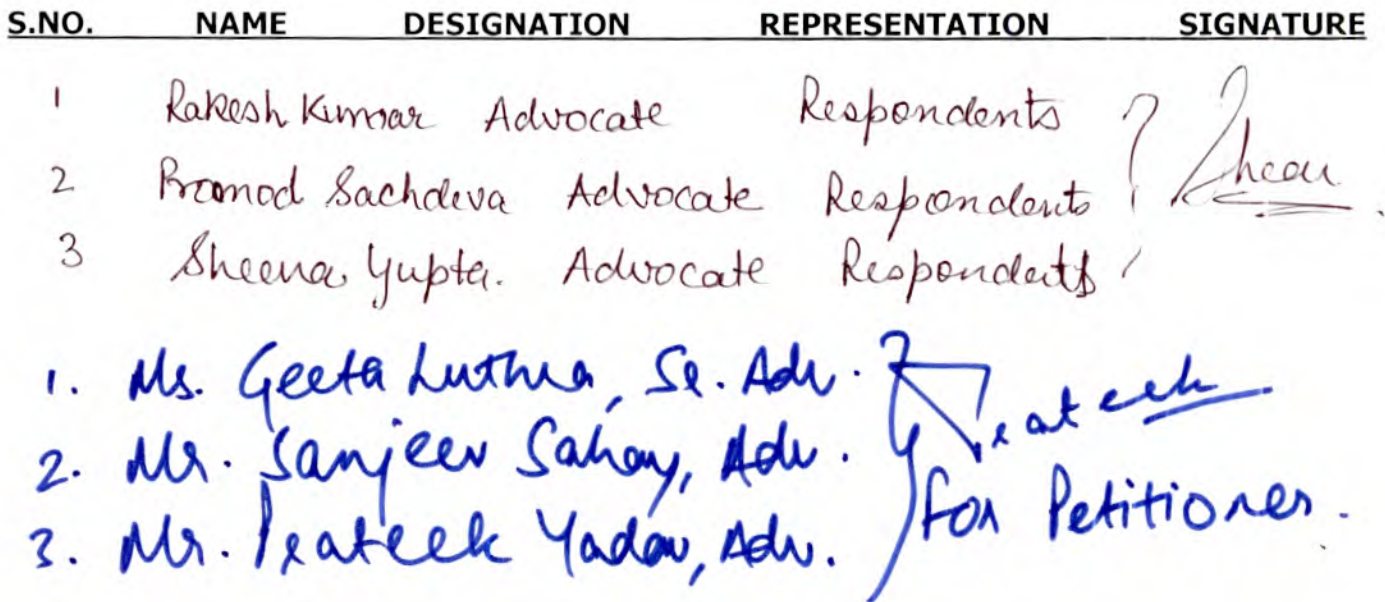 S.NO. NAME DESIGNATION REPRESENTATION SIGNATURE
1 Rakesh Kumar Advocate Respondents
2 Pramod Sachdeva Advocate Respondents
3 Sheena Gupta. Advocate Respondents
1. Ms. Geeta Luthra, Sr. Adv.
2. Mr. Sanjeev Sahay, Adv. Prateek
3. Mr. Prateek Yadav, Adv. for Petitioner.